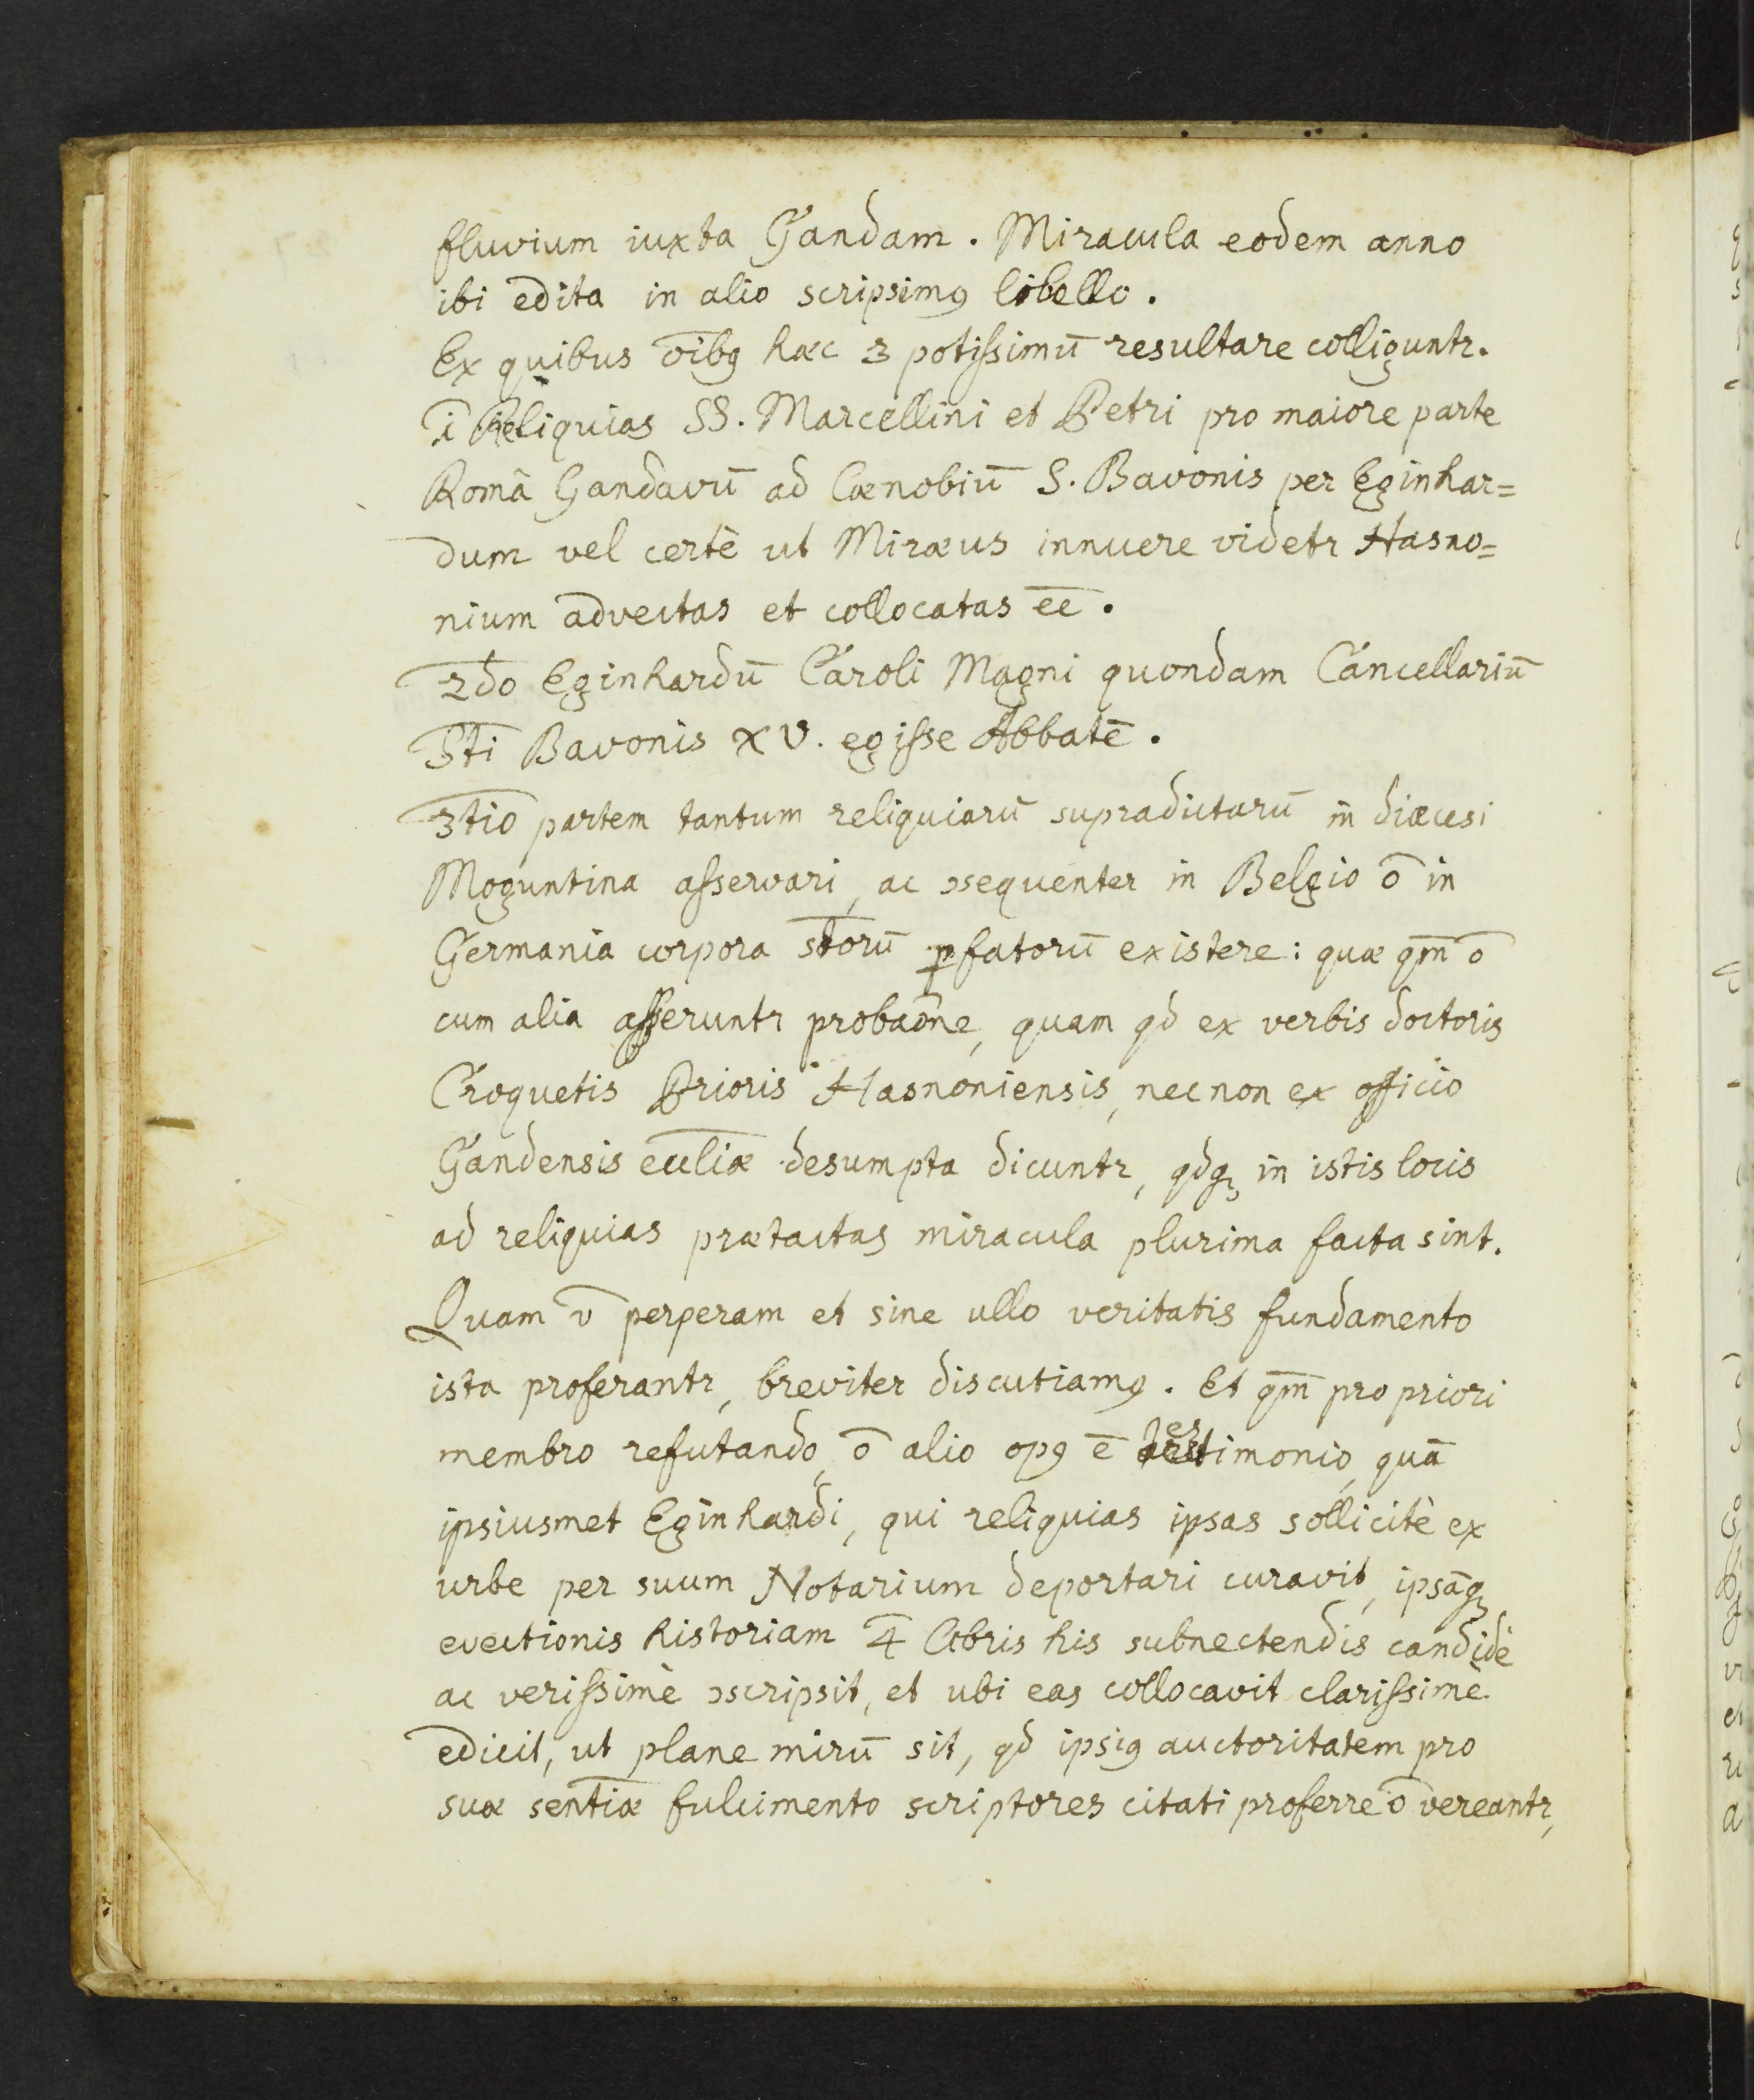 fluvium iuxta Gandam. Miracula eodem anno
ibi edita in alio scripsimꝰ libello.
Ex quibus oībꝰ hæc 3 potissimū resultare colliguntr.
ī Reliquias SS. Marcellini et Petri pro maiore parte
Româ Gandavū ad Cœnobiū S. Bavonis per Eginhar=
dum vel certè ut Miræus innuere videtr Hasno=
nium advectas et collocatas ēē.
2do Eginhardū Caroli Magni quondam Cancellariū
Sti Bavonis XV. egisse Abbatē.
3tio partem tantum reliquiarū supradictarū in diœcesi
Moguntina asservari, ac ɔsequenter in Belgio ō in
Germania corpora stōrū p̄fatorū existere: quæ qm̄ ō
cum alia asseruntr probaōne, quam qd ex verbis doctoris
Croquetis Prioris Hasnoniensis, necnon ex officio
Gandensis eccliæ desumpta dicuntr, qdqꝫ in istis locis
ad reliquias prætactas miracula plurima facta sint.
Quam v̄ perperam et sine ullo veritatis fundamento
ista proferantr, breviter discutiamꝰ. Et qm̄ pro priori
membro refutando, ō alio opꝰ ē testimonio, quā
ipsiusmet Eginhardi, qui reliquias ipsas sollicitè ex
urbe per suum Notarium deportari curavit, ipsāqꝫ
evectionis historiam 4 libris his subnectendis candidè
ac verissimè ɔscripsit, et ubi eas collocavit clarissimè
edicit, ut plane mirū sit, qd ipsiꝰ auctoritatem pro
suæ sentiæ fulcimento scriptores citati proferre ō vereantr,